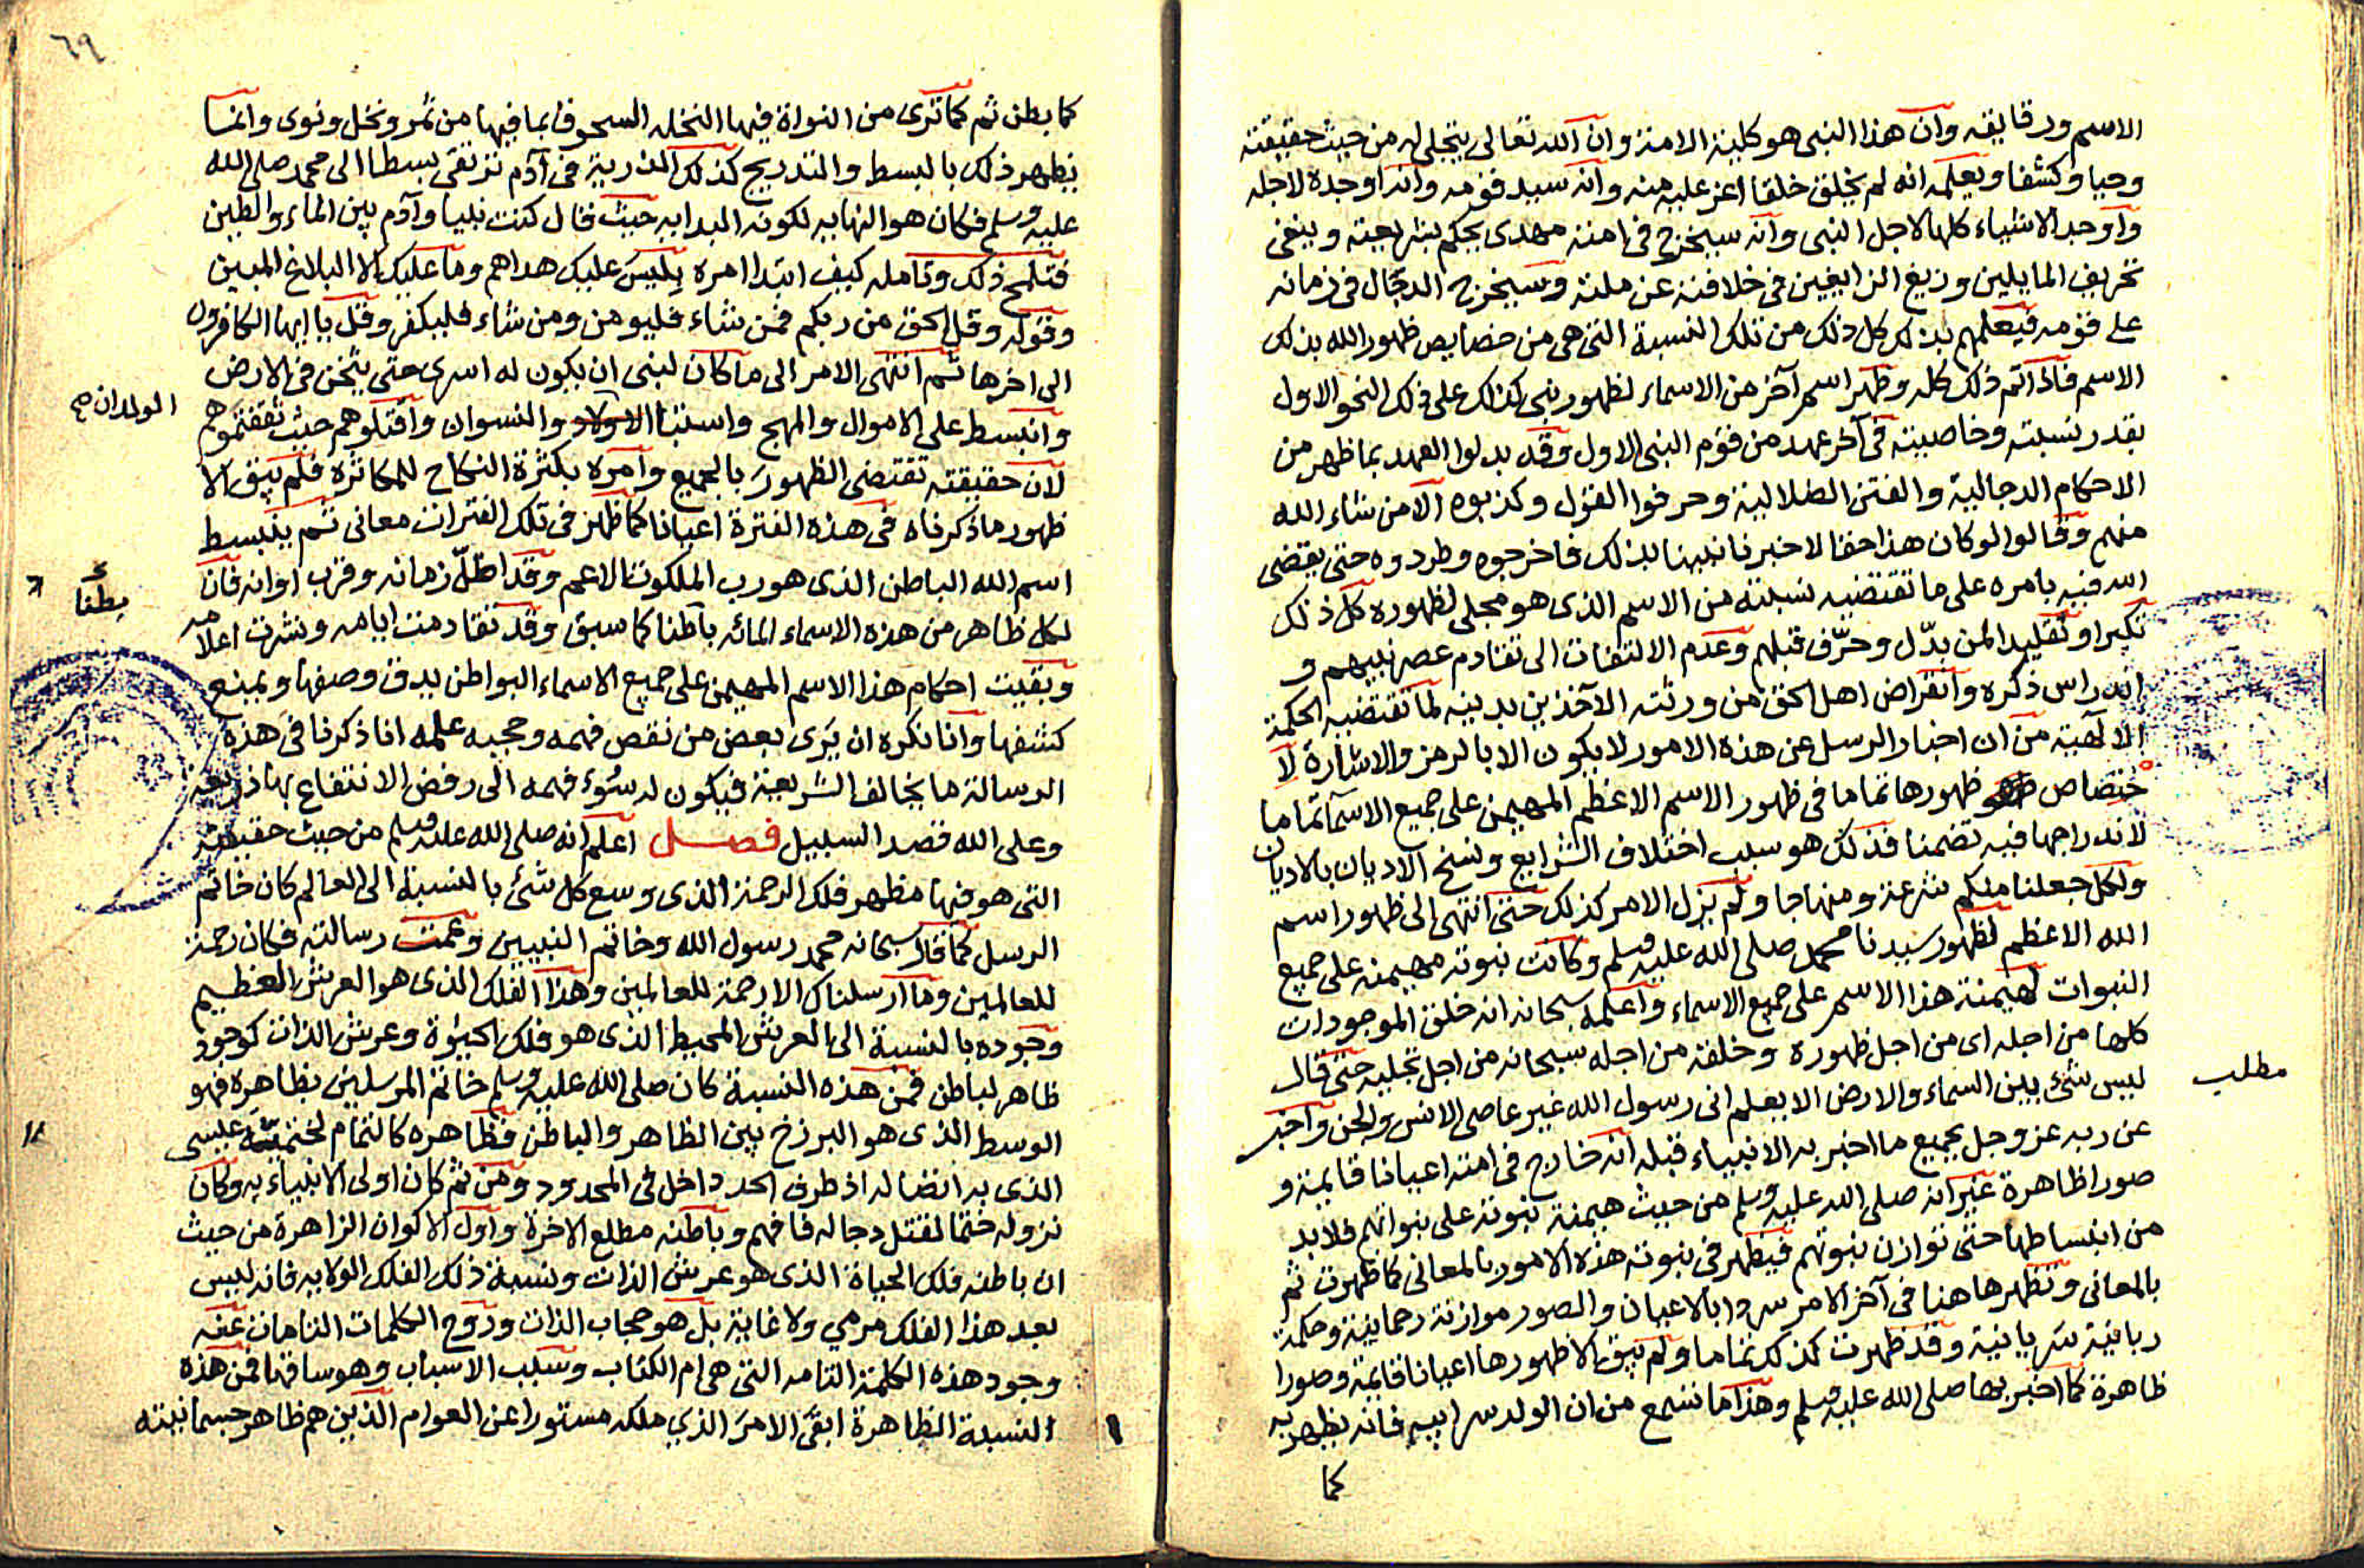 الاسم ورقايقه وان هذا النبى هو كلية الامنة وان الله تعالى يتجلى له من حيث حقيقته
وحيا وكشفا ويعلمه انه لم يخلق خلقا اعز عليه منه وانه سيد قومه وانه اوجده لاجله
واوجد الاشياء كلها لاجل النبى وانه سيخرج فى امته مهدى يحكم بشريعته وينفى
تحريف المايلين وزيغ الزايغين فى خلافته عن ملته وسيخرج الدجال فى زمانه
على قومه فيعلمهم بذلك كل ذلك من تلك النسبة التى هى من خصايص ظهور الله بذلك
الاسم فاذا تم ذلك كله وظهر اسم آخر من الاسماء لظهور نبى كذلك على ذلك النحو الاول
بقدر نسبته وخاصيته فى آخر عهد من قوم النبى الاول وقد بدلوا العهد بما ظهر من
الاحكام الدجالية والفتن الضلالية وحرفوا القول وكذبوه الا من شاء الله
منهم وقالوا لو كان هذا حقا لاخبرنا نبينا بذلك فاخرجوه وطردوه حتى يقضى
الله فيه بامره على ما تقتضيه نسبته من الاسم الذى هو مجلى لظهوره كل ذلك
تكبرا وتقليدا لمن بدّل وحرّف قبلهم وعدم الالتفات الى تقادم عصر نبيهم و
اندراس ذكره وانقراض اهل الحق من ورثته الآخذين بدينه لما تقتضيه الحكمة
الالهية من ان اخبار الرسل عن هذه الامور لا يكون الا بالرمز والاشارة لا
ختصاص ظهورها تماما فى ظهور الاسم الاعظم المهيمن على جميع الاسماء تماما
لاندراجها فيه تضمنا فذلك هو سبب اختلاف الشرايع ونسخ الاديان بالاديان
ولكل جعلنا منكم شرعة ومنهاجا ولم يزل الامر كذلك حتى انتهى الى ظهور اسم
الله الاعظم لظهور سيدنا محمد صلى الله عليه وسلم وكانت نبوته مهيمنه على جميع
النبوات لهيمنة هذا الاسم على جميع الاسماء واعلمه سبحانه انه خلق الموجودات
كلها من اجله اى من اجل ظهوره وخلقه من اجله سبحانه من اجل تجليه حتى قال
مطلب
ليس شئ بين السماء والارض الا يعلم انى رسول الله غير عاصى الانس والجن واخبر
عن ربه عز وجل بجميع ما اخبر به الانبياء قبله انه خارج فى امته اعيانا قايمة و
صورا ظاهرة غير انه صلى الله عليه وسلم من حيث هيمنة نبوته على نبواتهم فلا بد
من انبساطها حتى توازن نبوتهم فيظهر فى نبوته هذه الامور بالمعانى كما ظهرت ثم
بالمعانى وتظهرها هنا فى آخر الامر بالاعيان والصور موازنة رحمانية وحكمة
ربانية سريانية وقد ظهرت كذلك تماما ولم يبق الا ظهورها اعيانا قايمة وصورا
ظاهرة كما اخبر بها صلى الله عليه وسلم وهذا ما نسمع من ان الولد سر ابيه فانه يظهر به
كما
٦٩
كما بطن ثم كما ترى من النواة فيها النخله السحوق بما فيها من ثمر ونخل ونوى وانما
يظهر ذلك بالبسط والتدريج كذلك الذرية فى آدم ترتقى بسطا الى محمد صلى الله
عليه وسلم فكان هو النهايه لكونه البدايه حيث قال كنت نبيا وآدم بين الماء والطين
فتلمح ذلك وتامله كيف ابتدا امره بليس عليك هداهم وما عليك الا البلاغ المبين
وقوله وقل الحق من ربكم فمن شاء فليومن ومن شاء فليكفر وقل يا ايها الكافرون
الى اخرها ثم انتهى الامر الى ما كان لنبى ان يكون له اسرى حتى يثخن فى الارض
وانبسط على الاموال والمهج واستبا الاولاد والنسوان واقتلوهم حيث ثقفتموهم
الولدان صح
لان حقيقته تقتضى الظهور بالجميع وامره بكثرة النكاح للمكاثرة فلم يبق الا
ظهور ما ذكرناه فى هذه الفترة اعيانا كما ظهر فى تلك الفترات معانى ثم ينبسط
اسم الله الباطن الذى هو رب الملكوت الاعم وقد اظلّ زمانه وقرب اوانه فان
بطنا
لكل ظاهر من هذه الاسماء المائه باطنا كما سبق وقد تقادمت ايامه ونشرت اعلامه
وبقيت احكام هذا الاسم المهيمن على جميع الاسماء البواطن يدق وصفها ويمنع
كشفها وانا نكره ان يرى بعض من نقص فهمه وحجبه علمه انا ذكرنا فى هذه
الرسالة ما يخالف الشريعة فيكون له سوء فهمه الى رفض الانتفاع بها ذريعة
وعلى الله قصد السبيل فصل اعلم انه صلى الله عليه وسلم من حيث حقيقته
التى هو فيها مظهر فلك الرحمة الذى وسع كل شئ بالنسبة الى العالم كان خاتم
الرسل كما قال سبحانه محمد رسول الله وخاتم النبيين وعمت رسالته فكان رحمة
للعالمين وما ارسلناك الا رحمة للعالمين وهذا الفلك الذى هو العرش العظيم
وجوده بالنسبة الى العرش المحيط الذى هو فلك الحيوة وعرش الذات كوجود
ظاهر لباطن فمن هذه النسبة كان صلى الله عليه وسلم خاتم المرسلين بظاهره فهو
الوسط الذى هو البرزخ بين الظاهر والباطن فظاهره كالتمام لختميّة عيسى
الذى به اتصاله اذ طرف الحد داخل فى المحدود ومن ثم كان اولى الانبياء به وكان
نزوله ختما لقتل دجاله فافهم وباطنه مطلع الاخرة واول الاكوان الزاهرة من حيث
ان باطنه فلك الحياة الذى هو عرش الذات ونسبة ذلك الفلك الولايه فانه ليس
بعد هذا الفلك مرمى ولا غاية بل هو حجاب الذات وروح الكلمات التامات عنه
وجود هذه الكلمة التامه التى هى ام الكتاب وسبب الاسباب وهو ساقها فمن هذه
النسبة الظاهرة ابقى الامر الذي ملكه مستورا عن العوام الذين هم ظاهر جسمانيته